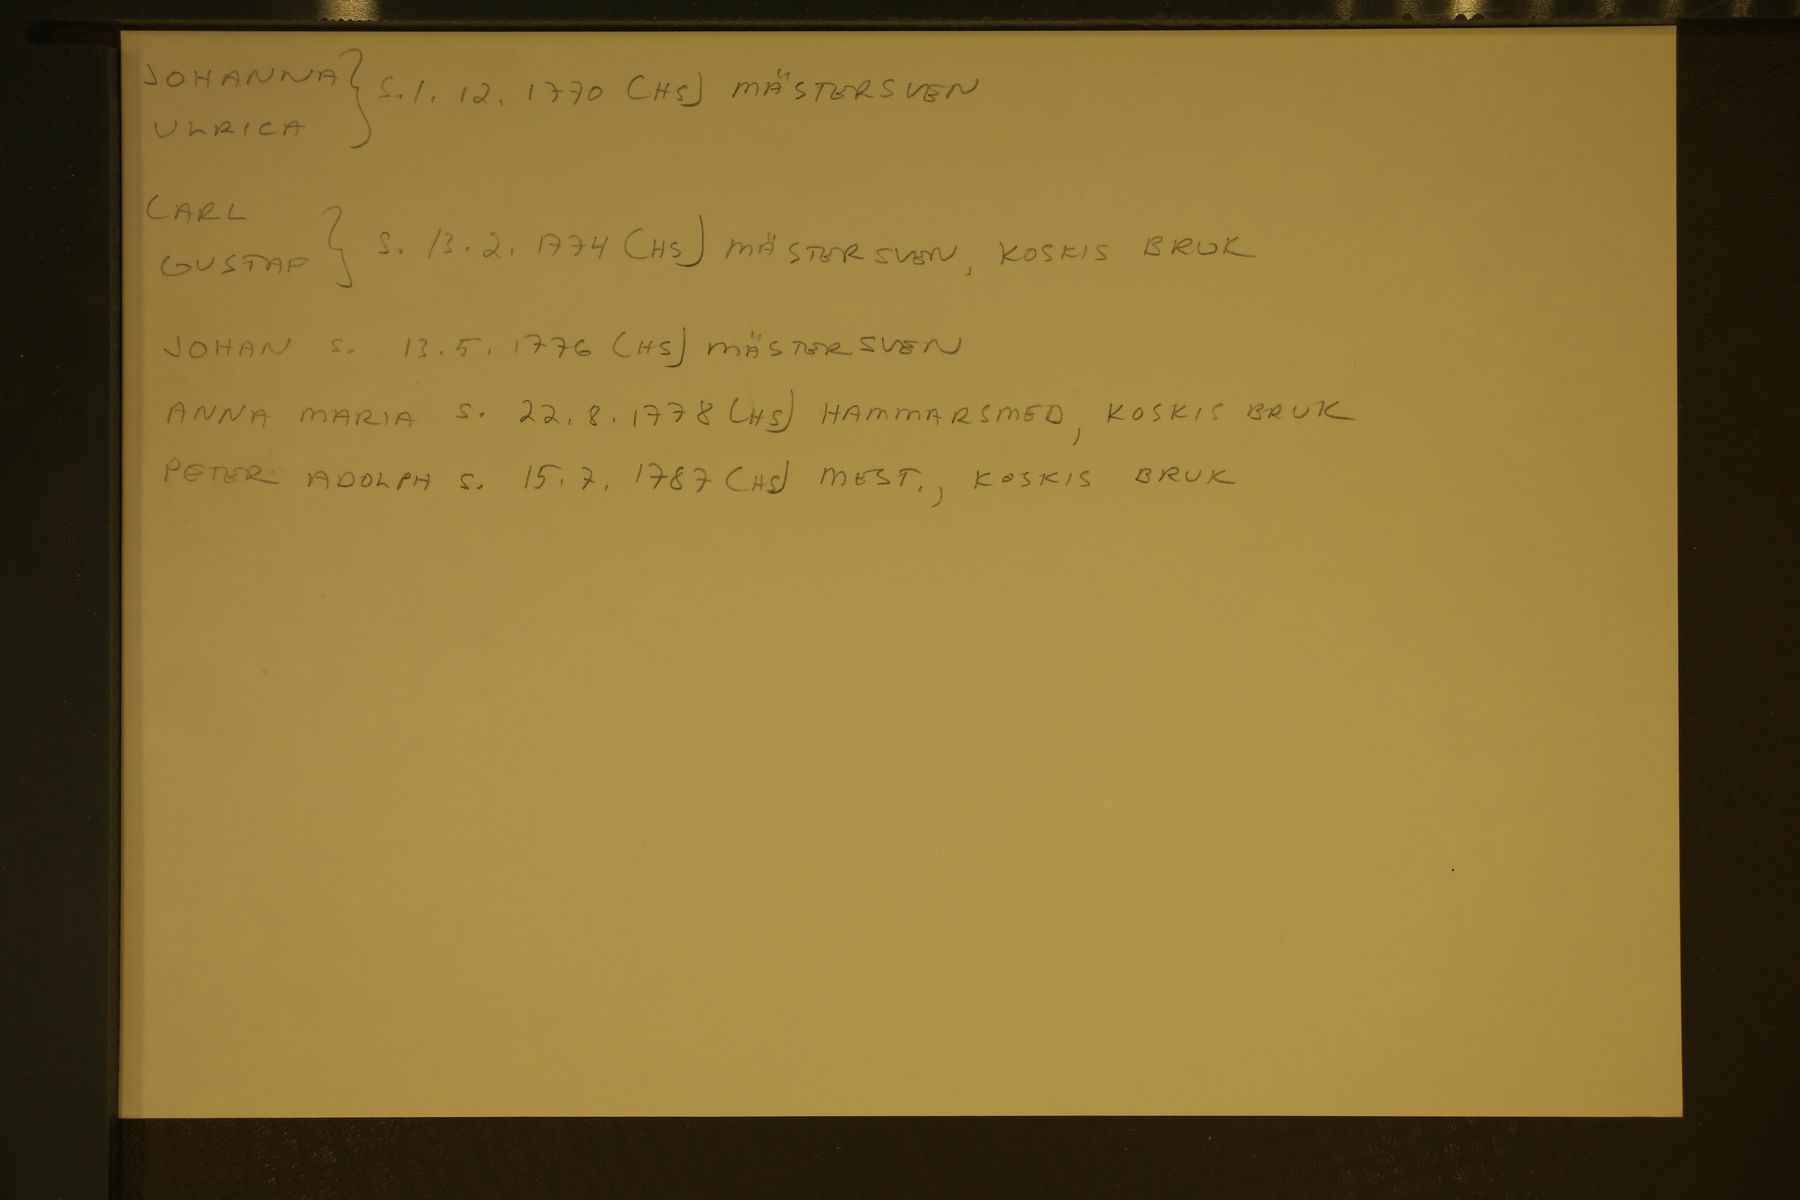 JOHANNA } S. 1. 12. 1770 (HS) MÄSTERSVEN
ULRICA
CARL
GUSTAF } S. 13. 2. 1774 (HS) MÄSTERSVEN, KOSKIS BRUK
JOHAN S. 13. 5. 1776 (HS) MÄSTERSVEN
ANNA MARIA S. 22. 8. 1778 (HS) HAMMARSMED, KOSKIS BRUK
PETER ADOLPH S. 15. 7. 1787 (HS) MEST., KOSKIS BRUK